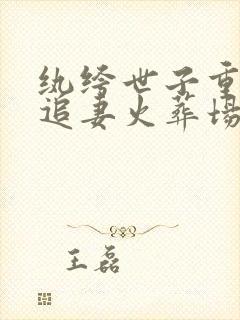 纨绔世子重
追妻火葬场
王磊